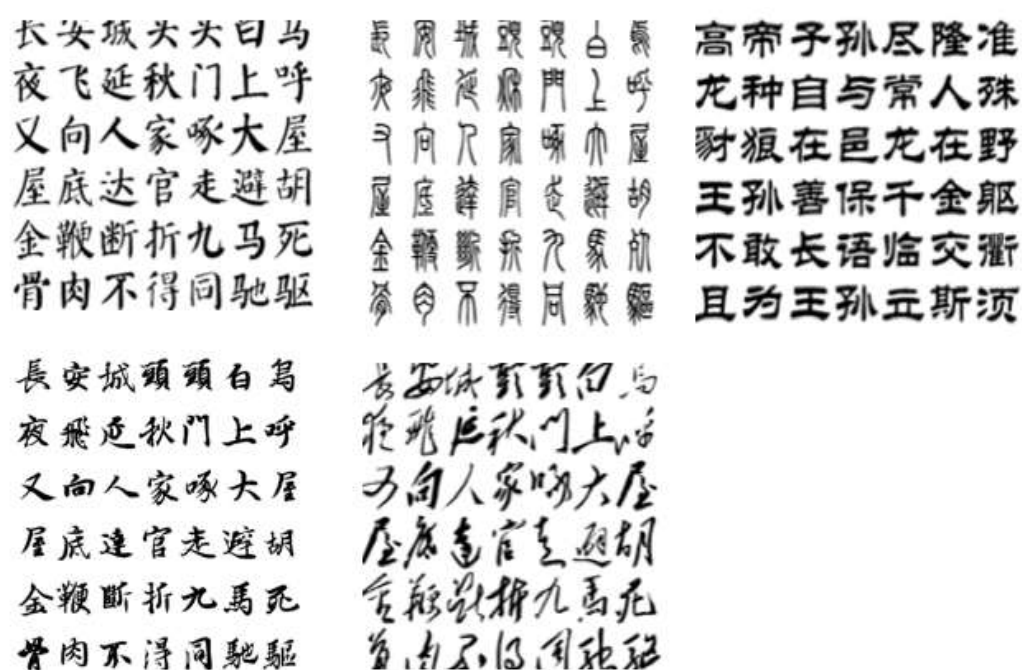 长安城头头白马
夜飞延秋门上呼
又向人家啄大屋
屋底达官走避胡
金鞭断折九马死
骨肉不得同驰驱
長安城頭頭白馬
夜飛延秋門上呼
又向人家啄大屋
屋底達官走避胡
金鞭斷折九馬死
骨肉不得同馳驅
高帝子孙尽隆准
龙种自与常人殊
豺狼在邑龙在野
王孙善保千金躯
不敢长语临交衢
且为王孙立斯须
長安城頭頭白烏
夜飛延秋門上呼
又向人家啄大屋
屋底達官走避胡
金鞭斷折九馬死
骨肉不得同馳驅
長安城頭頭白馬
夜飛延秋門上呼
又向人家啄大屋
屋底達官走避胡
金鞭斷折九馬死
骨肉不得同馳驅